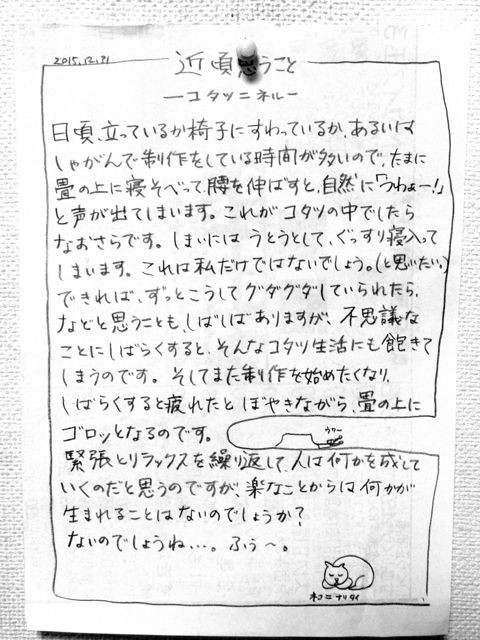 2015.12.31
近頃思うこと
—コタツニネル—
日頃、立っているか椅子にすわっているか、あるいは
しゃがんで制作をしている時間が多いので、たまに
畳の上に寝そべって、腰を伸ばすと、自然に「うわぁー!」
と声が出てしまいます。これがコタツの中でしたら
なおさらです。しまいにはうとうとして、ぐっすり寝入って
しまいます。これは私だけではないでしょう。(と思いたい。)
できれば、ずっとこうしてグダグダしていられたら、
などと思うことも、しばしばありますが、不思議な
ことにしばらくすると、そんなコタツ生活にも飽きて
しまうのです。そしてまた制作を始めたくなり、
しばらくすると疲れたとぼやきながら、畳の上に
ゴロッとなるのです。
うわー
緊張とリラックスを繰り返して、人は何かを成して
いくのだと思うのですが、楽なことからは何かが
生まれることはないのでしょうか?
ないのでしょうね…。ふぅ〜。
ネコニナリタイ